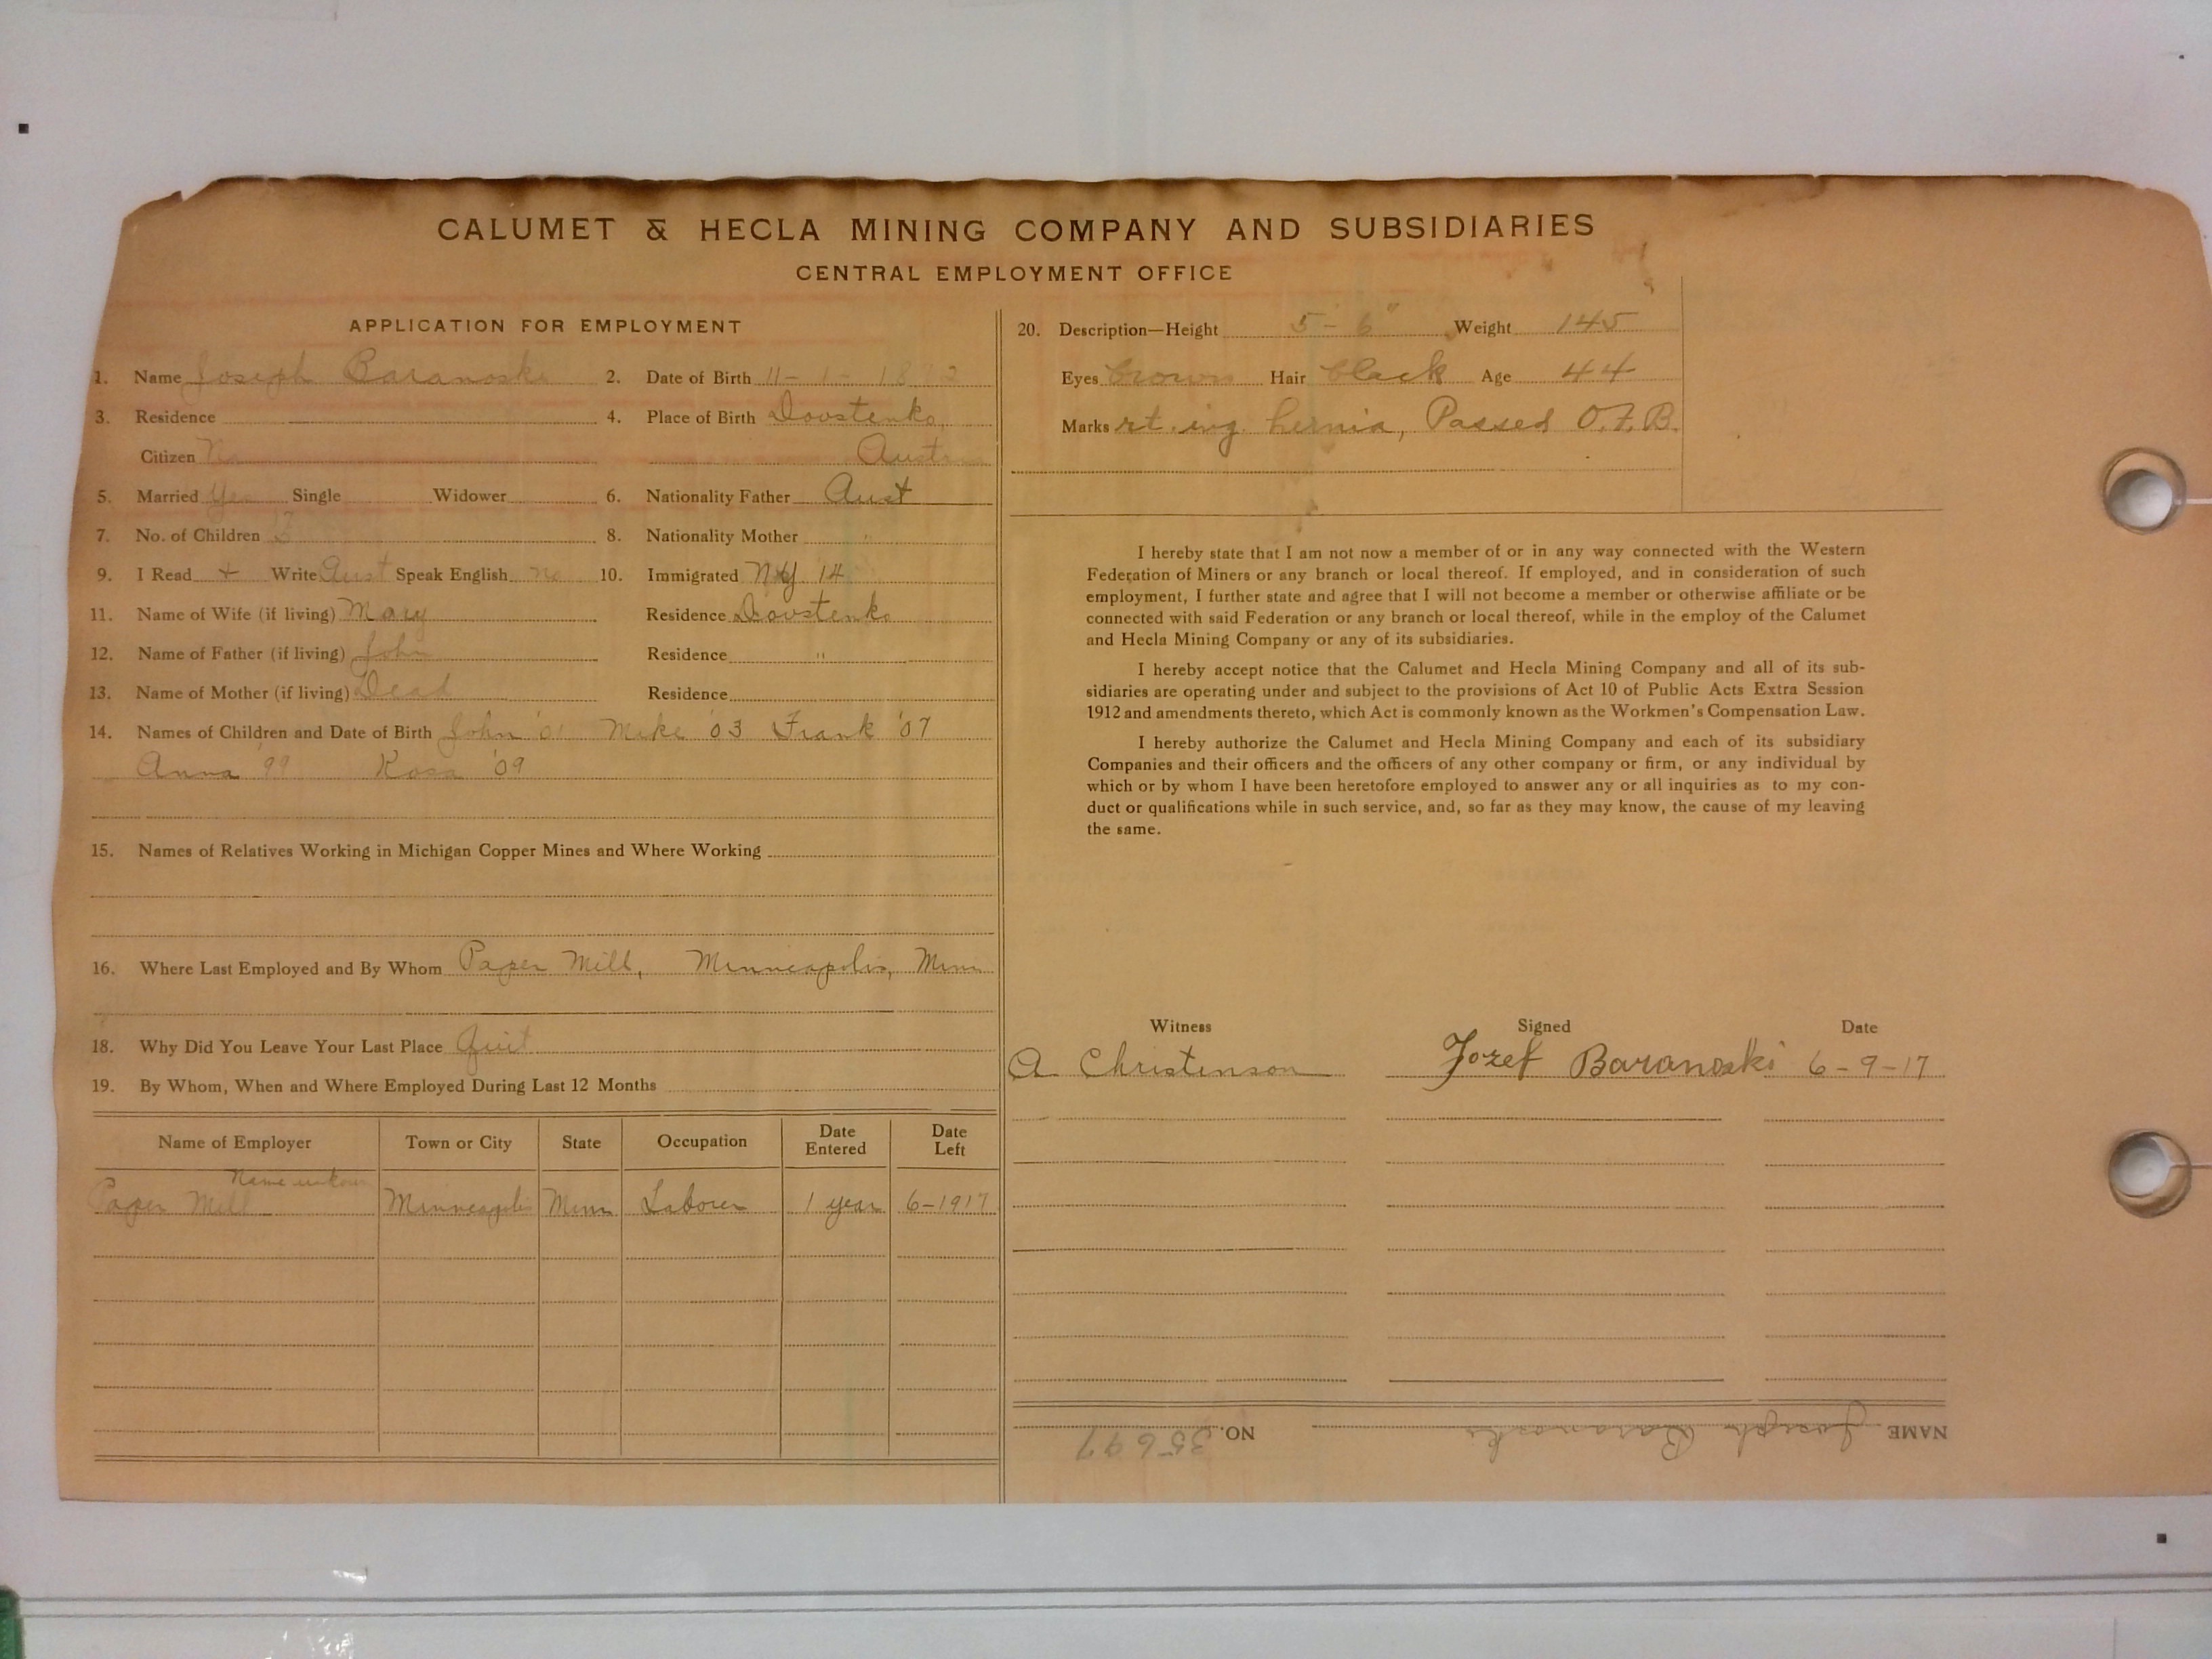 CALUMET & HECLA MINING COMPANY AND SUBSIDIARIES
CENTRAL EMPLOYMENT OFFICE
APPLICATION FOR EMPLOYMENT
1. Name Joseph Baranoski 2. Date of Birth 11-1-18
3. Residence 4. Place of Birth Dovstenko
Citizen No Austria
5. Married Yes Single Widower 6. Nationality Father Aust
7. No. of Children 8. Nationality Mother "
9. I Read + Write Aust Speak English no 10. Immigrated NY 14
11. Name of Wife (if living) Mary Residence Dovstenko
12. Name of Father (if living) John Residence "
13. Name of Mother (if living) Dead Residence
14. Names of Children and Date of Birth John '01 Mike '03 Frank '07
Anna '99 Rosa '09
15. Names of Relatives Working in Michigan Copper Mines and Where Working
16. Where Last Employed and By Whom Paper Mill, Minneapolis, Minn
18. Why Did You Leave Your Last Place Quit
19. By Whom, When and Where Employed During Last 12 Months
Name of Employer Town or City State Occupation Date Entered Date Left
Name unkown
Paper Mill Minneapolis Minn Laborer 1 year 6-1917
20. Description—Height 5-6" Weight 145
Eyes brown Hair black Age 44
Marks rt. ing. hernia, Passed O.F.B.
I hereby state that I am not now a member of or in any way connected with the Western
Federation of Miners or any branch or local thereof. If employed, and in consideration of such
employment, I further state and agree that I will not become a member or otherwise affiliate or be
connected with said Federation or any branch or local thereof, while in the employ of the Calumet
and Hecla Mining Company or any of its subsidiaries.
I hereby accept notice that the Calumet and Hecla Mining Company and all of its sub-
sidiaries are operating under and subject to the provisions of Act 10 of Public Acts Extra Session
1912 and amendments thereto, which Act is commonly known as the Workmen's Compensation Law.
I hereby authorize the Calumet and Hecla Mining Company and each of its subsidiary
Companies and their officers and the officers of any other company or firm, or any individual by
which or by whom I have been heretofore employed to answer any or all inquiries as to my con-
duct or qualifications while in such service, and, so far as they may know, the cause of my leaving
the same.
Witness Signed Date
A Christenson Jozef Baranoski 6-9-17
NAME Joseph Baranoski NO. 35697